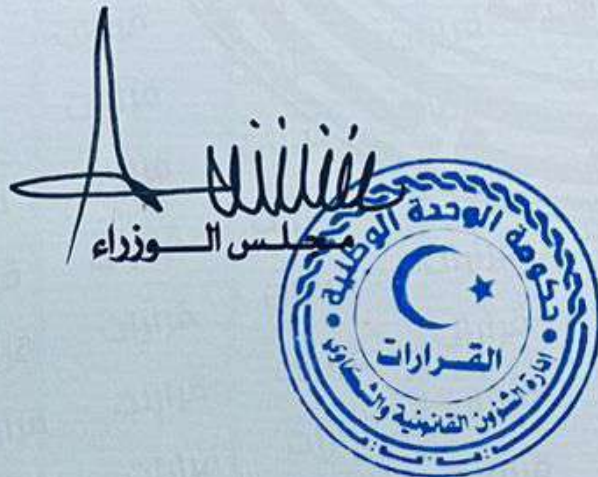 مجلس الــوزراء
حكومة الوحدة الوطنية
القــرارات
ادارة الشؤون القانونية والشكاوى